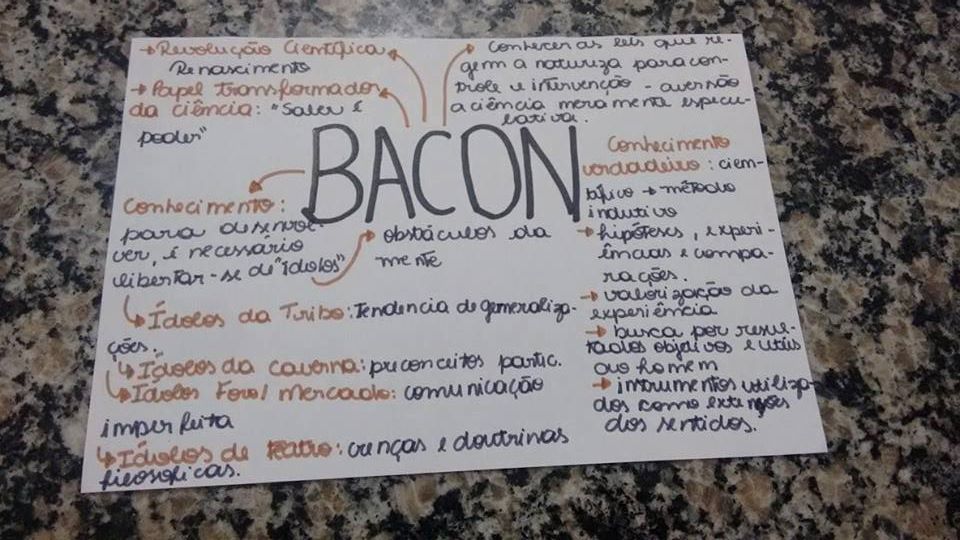 → Revolução Científica
Renascimento
→ Papel transformador
da ciência: "Saber é
poder"
→ Conhecer as leis que re-
gem a natureza para con-
trole e intervenção - aversão
a ciência meramente especu-
lativa.
BACON
Conhecimento:
para desenvol-
ver, é necessário
libertar-se de "ídolos"
→ obstáculos da
mente
↳ Ídolos da Tribo: Tendencia de generaliza-
ções.
↳ Ídolos da caverna: preconceitos partic.
↳ Ídolos Foro/Mercado: comunicação
imperfeita
↳ Ídolos de teatro: crenças e doutrinas
filosoficas.
Conhecimento
verdadeiro: cien-
tífico → método
indutivo
→ hipóteses, experi-
ências e compa-
rações.
→ valorização da
experiência
→ busca por resul-
tados objetivos e utéis
ao homem
→ instrumentos utiliza-
dos como extensões
dos sentidos.